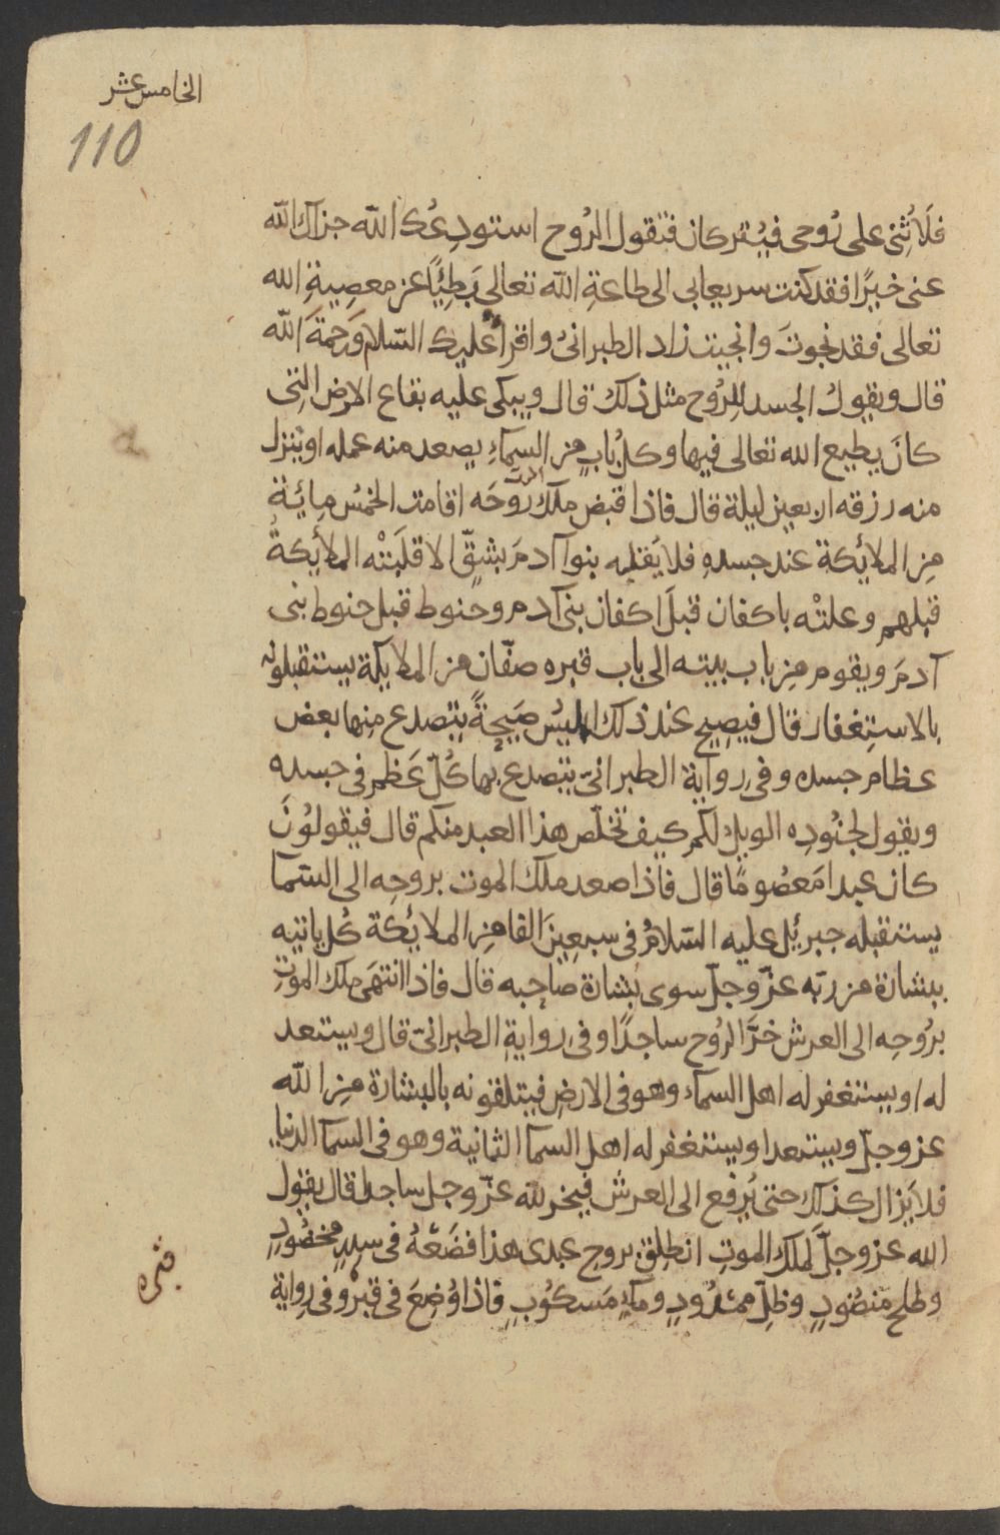 الخامس عشر
110
على روحى فتقول الروح استودعك الله جزاك الله
عنى خيرًا فقد كنت سريعا بى الى طاعةِ الله تعالى بَطِئيًا عن معصِيةِ الله
تعالى فقد نجوتَ وانجيت زاد الطبرانى واقرأ عليك السّلام وَرحمةَ الله
قال ويقول الجسد للرُوح مثل ذلك قال ويبكى عليه بقاع الارض التِى
كانَ يطيع الله تعالى فيها وكل بابٍ من السمآءِ يصعد منه عمله او ينزل
منه رزقه اربعين ليلة قال فاذا قبض ملك الموت روحَه اقامت الخمسُ مِائة
مِن الملائكة عند جسدهِ فلا يَقلبه بنوا آدمَ بشقٍّ الا قلَبَتْه الملائكةُ
قبلهم وعلتْه باكفان قبلَ اكفان بنى آدم وحنوط قبل حنوط بنى
آدمَ ويقوم مِن باب بيته الى باب قبره صفّان من الملايكة يستقبلونه
بالاستِغفار قال فيصِيح عند ذلك ابليسُ صَيحةً يتصدع مِنها بعض
عظام جسده وفى رواية الطبرانىّ يتصدع بها كُلّ عَظم فى جسده
ويقول لجنُودِه الويل لكم كيف تخلّص هذا العبد منكم قال فيقولوُنَ
كان عبدا مَعصُومًا قال فاذا صعد ملك الموت بروحِه الى السّما
يستقبله جبرئيل عليه السّلامُ فى سبعِينَ الفا مِن الملائكة كُل ياتيه
ببشارة من ربّه عزّ وجلّ سوى بشارة صاحِبه قال فاذا انتهَى ملك الموتِ
برُوحِه الى العرش خَرَّ الرُوح ساجدًا وفى روايةِ الطبرانىّ قال ويستعد
له ويستغفر له اهل السمآء وهو فى الارضِ فيتلقونه بالبشارة مِن الله
عز وجلّ ويستعد ويستغفر له اهل السما الثانية وهو فى السما الدنيا
فلا يَزال كذلك حتى يُرفع الى العرش فيخر لله عزّ وجل ساجدا قال يقول
الله عز وجلّ لملك الموتِ انطلِق بروح عبدى هذا فضَعْهُ فى سِدرٍ مخضُودٍ
وطلح مَنضُودٍ وظِلّ ممدُودٍ ومآءٍ مَسكُوبٍ فاذا وُضِعَ فى قبره وفى رِواية
قبره